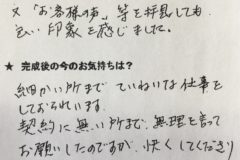 又"お客様の声"等を拝見しても
良い印象を感じました。
★ 完成後の今のお気持ちは？
細かい所まで ていねいな仕事を
しておられいます。
契約に無い所まで、無理を言って
お願いしたのですが、快くしてくださり